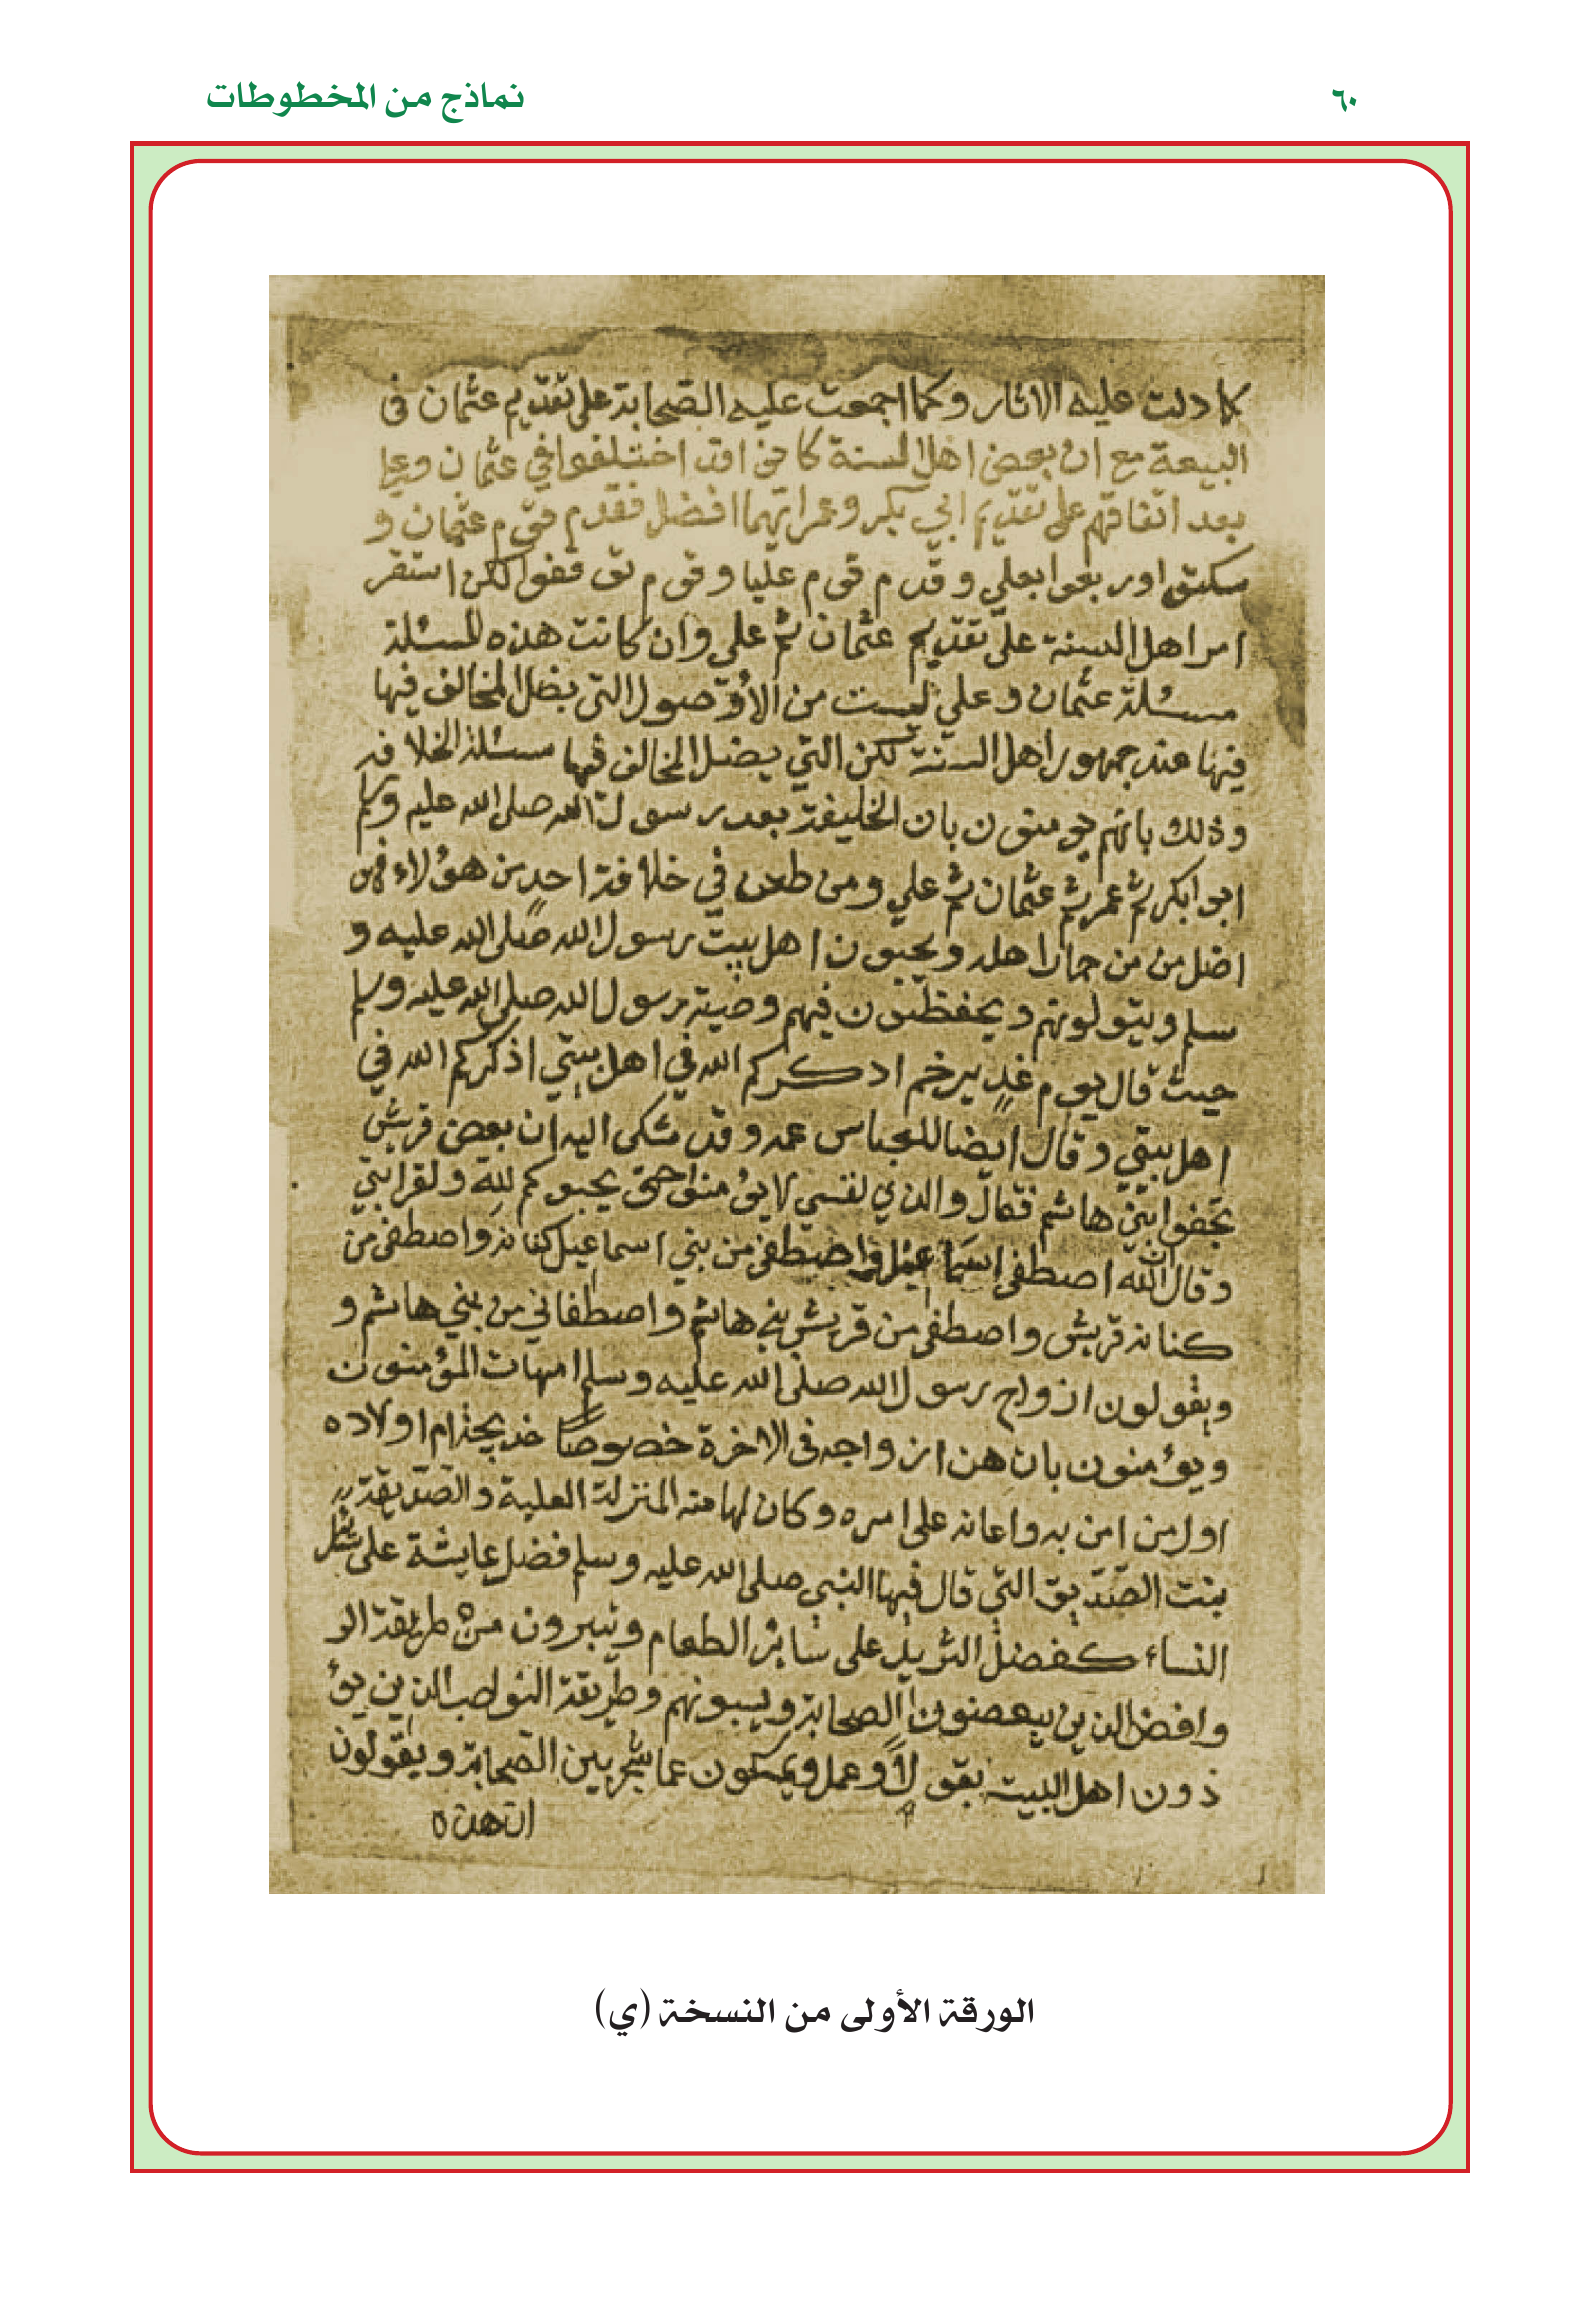 ٦٠
نماذج من المخطوطات
كما دلت عليه الاثار وكما اجمعت عليه الصحابة على تقديم عثمان في
البيعة مع ان بعض اهل السنة كانوا قد اختلفوا في عثمان وعلي
بعد اتفاقهم على تقديم ابي بكر وعمر ايهما افضل فقدم قوم عثمان و
سكتوا وربعوا بعلي وقدم قوم عليا وقوم توقفوا لكن استقر
امر اهل السنة على تقديم عثمان ثم علي وان كانت هذه المسئلة
مسئلة عثمان وعلي ليست من الاصول التي يضل المخالف فيها
فيها عند جمهور اهل السنة لكن التي يضل المخالف فيها مسئلة الخلافة
وذلك بانهم يومنون بان الخليفة بعد رسول الله صلى الله عليه وسلم
ابو بكر ثم عمر ثم عثمان ثم علي ومن طعن في خلافة احد من هؤلاء فهو
اضل من حمار اهله ويحبون اهل بيت رسول الله صلى الله عليه و
سلم ويتولونهم ويحفظون فيهم وصية رسول الله صلى الله عليه وسلم
حيث قال يوم غدير خم اذكركم الله في اهل بيتي اذكركم الله في
اهل بيتي وقال ايضا للعباس عمه وقد شكى اليه ان بعض قريش
يجفوا بني هاشم فقال والذي نفسي لا يؤمنوا حتى يحبوكم لله ولقرابتي
وقال ان الله اصطفى اسماعيل واصطفى من بني اسماعيل كنانة واصطفى من
كنانة قريش واصطفى من قريش بني هاشم واصطفاني من بني هاشم و
ويقولون ازواج رسول الله صلى الله عليه وسلم امهات المؤمنون
ويؤمنون بان هن ازواجه في الاخرة خصوصا خديجة ام اولاده
اول من امن به واعانه على امره وكان لها منه المنزلة العلية والصديقة
بنت الصديق التي قال فيها النبي صلى الله عليه وسلم فضل عايشة على
النساء كفضل الثريد على سائر الطعام ويتبرون من طريقة الرو
وافض الذين يبغضون الصحابة ويسبونهم وطريقة النواصب الذين يؤ
ذون اهل البيت بقول او عمل ويمسكون عما شجر بين الصحابة ويقولون
ان هذه
الورقة الأولى من النسخة (ي)